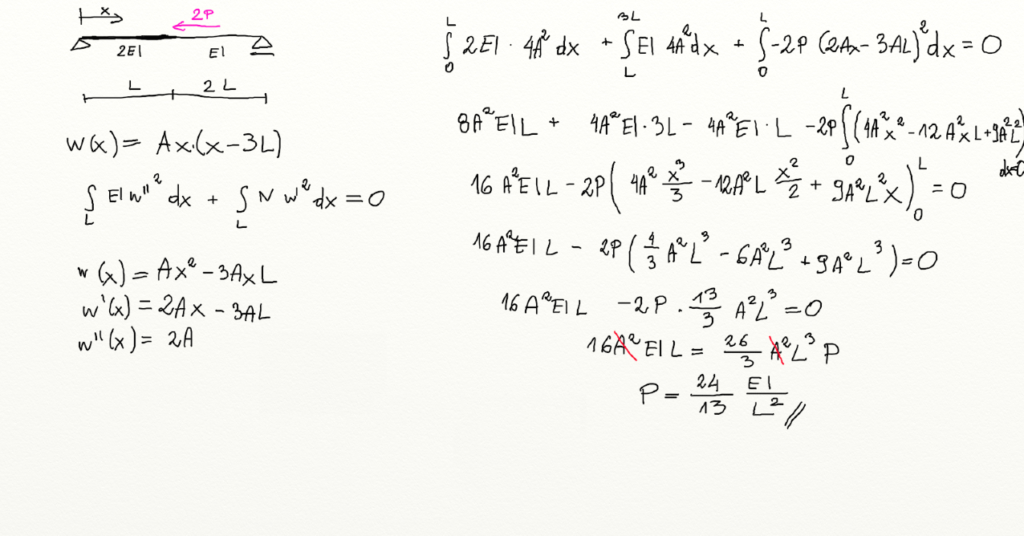 x
2P
2EI EI
L 2L
w(x) = Ax·(x-3L)
∫_L EI w''² dx + ∫_L N w'² dx = 0
w(x) = Ax² - 3AxL
w'(x) = 2Ax - 3AL
w''(x) = 2A
∫_0^L 2EI · 4A² dx + ∫_L^3L EI 4A² dx + ∫_0^L -2P (2Ax - 3AL)² dx = 0
8A²EIL + 4A²EI·3L - 4A²EI·L - 2P ∫_0^L (4A²x² - 12A²xL + 9A²L²) dx=0
16A²EIL - 2P (4A² x³/3 - 12A²L x²/2 + 9A²L²x)_0^L = 0
16A²EIL - 2P (4/3 A²L³ - 6A²L³ + 9A²L³) = 0
16A²EIL - 2P · 13/3 A²L³ = 0
16A²EIL = 26/3 A²L³ P
P = 24/13 EI/L² //